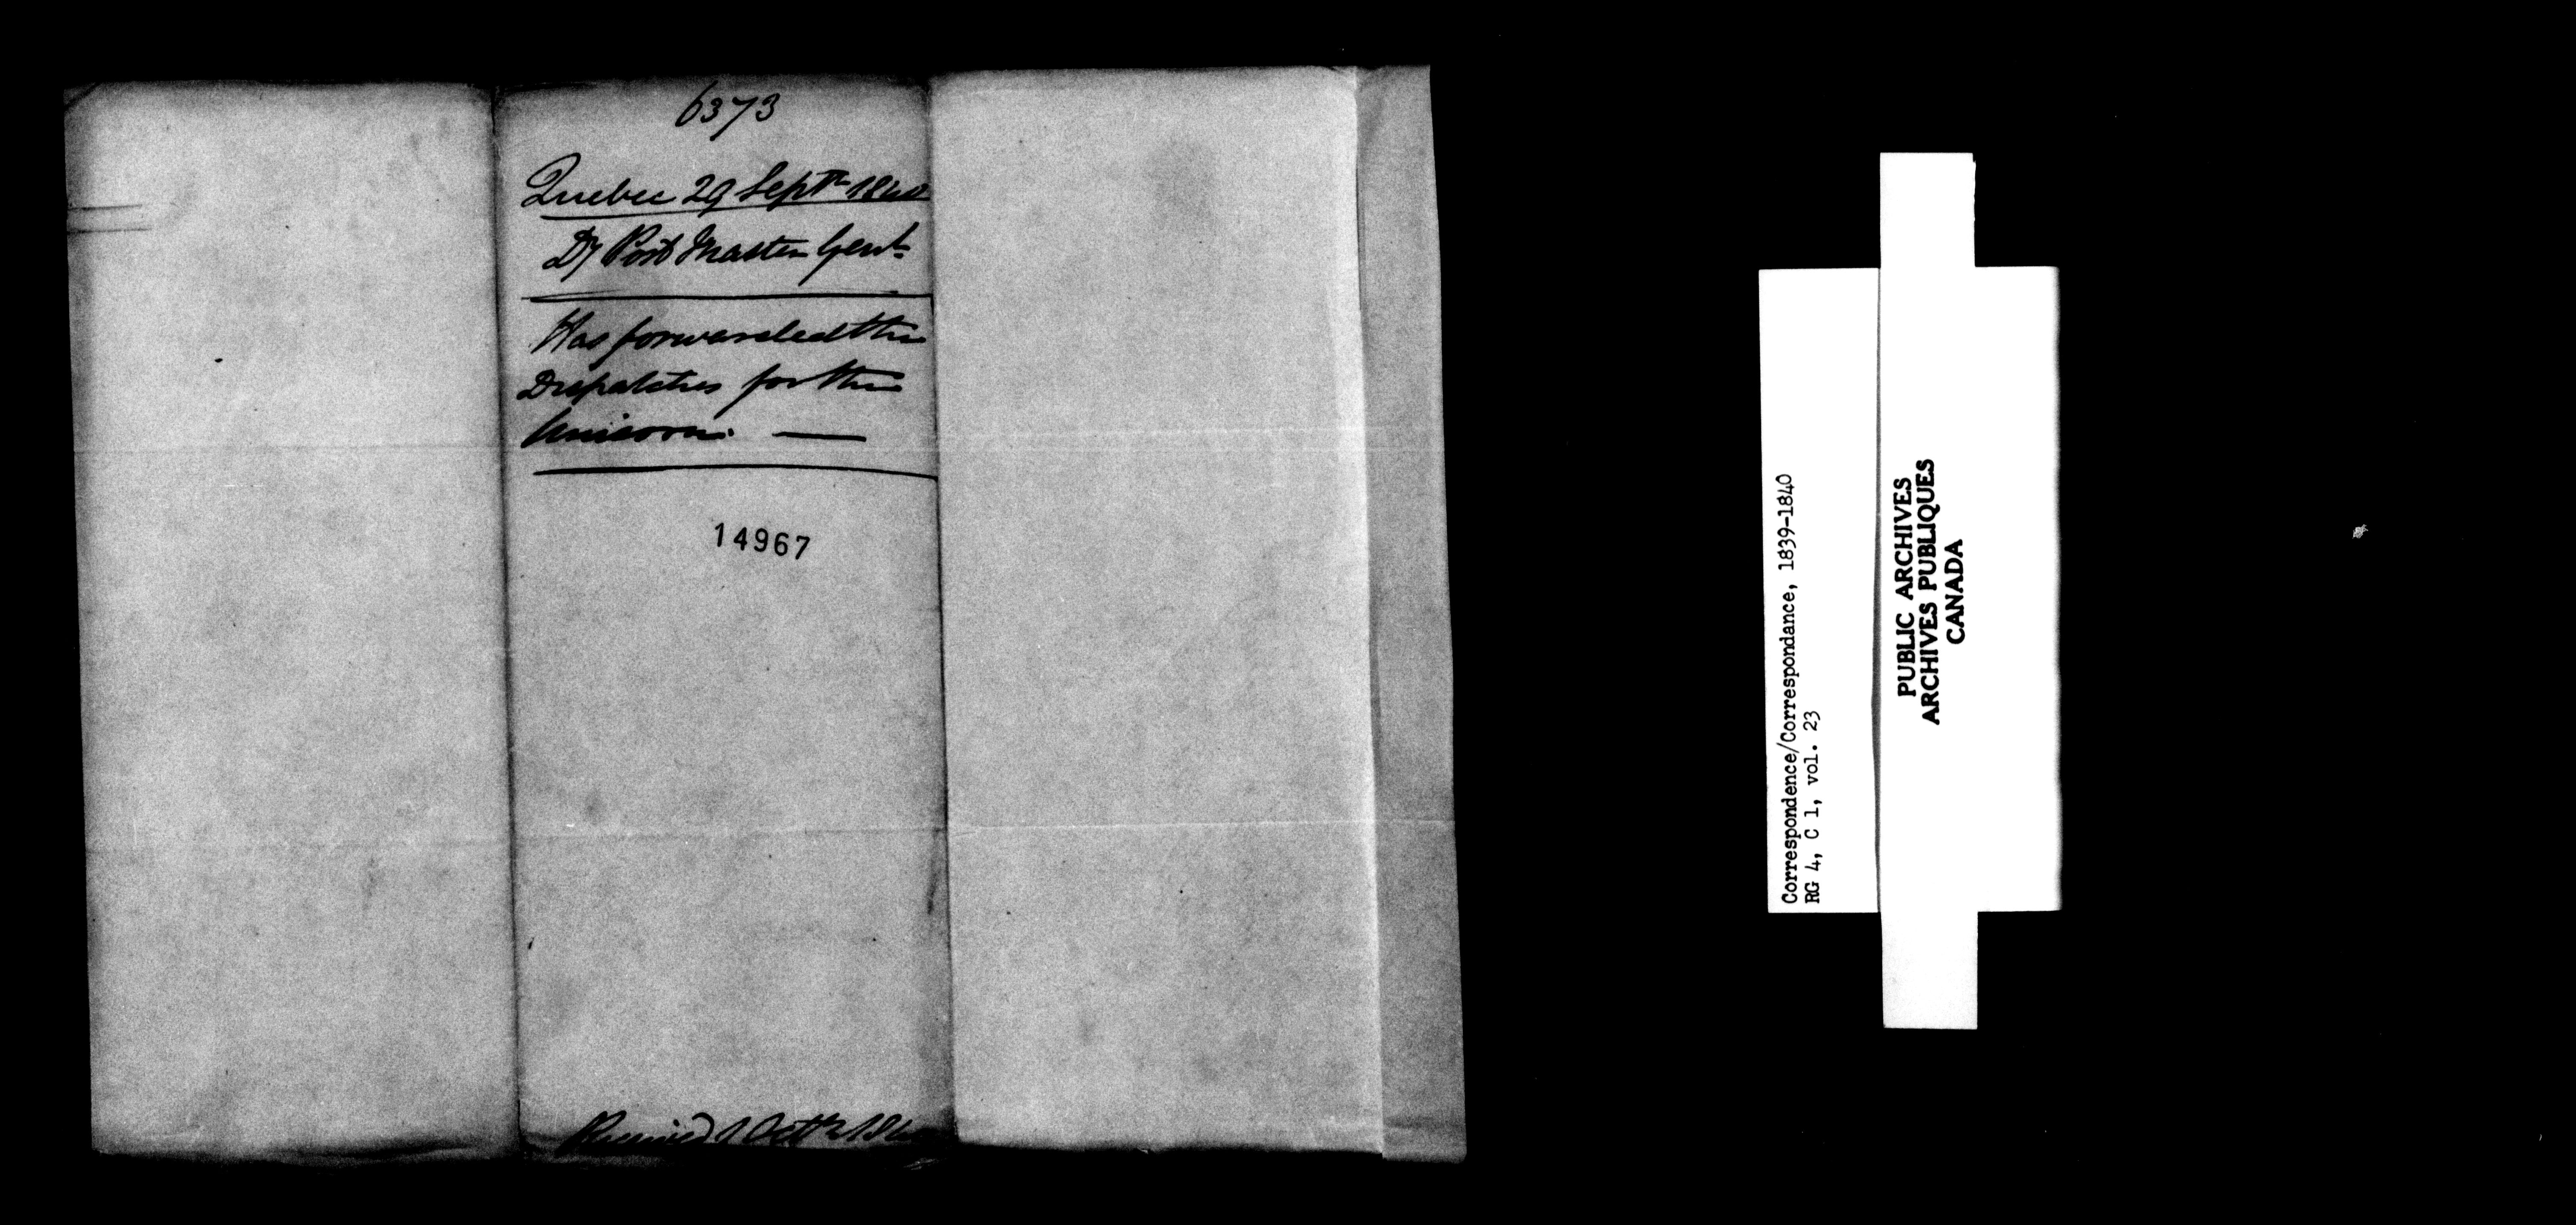 6373
Quebec 29 Septr 1840
Dy Post Master Genl.
Has forwarded the
Dispatches for the
Unicorn. —
14967
Received 1 Octr 1840
Correspondence/Correspondance, 1839-1840
RG 4, C 1, vol. 23
PUBLIC ARCHIVES
ARCHIVES PUBLIQUES
CANADA